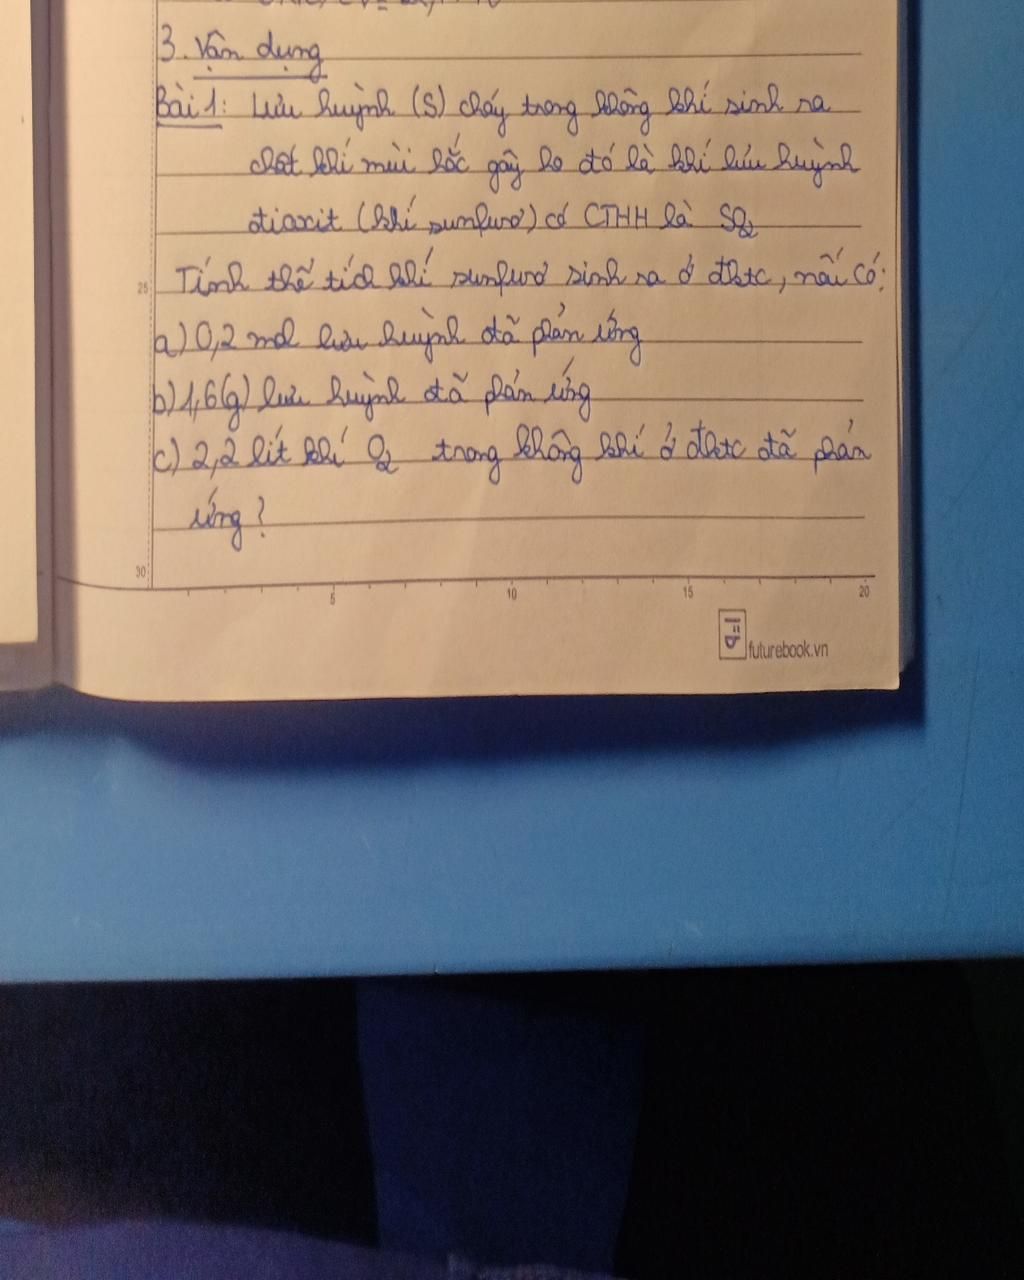 3. Vận dụng
Bài 1: Lưu huỳnh (S) cháy trong không khí sinh ra
chất khí mùi hắc gây ho đó là khí lưu huỳnh
đioxit (khí sunfurơ) có CTHH là SO2
Tính thể tích khí sunfurơ sinh ra ở đktc, nếu có:
25
a) 0,2 mol lưu huỳnh đã phản ứng
b) 1,6(g) lưu huỳnh đã phản ứng
c) 2,2 lít khí O2 trong không khí ở đktc đã phản
ứng?
30
5 10 15 20
futurebook.vn